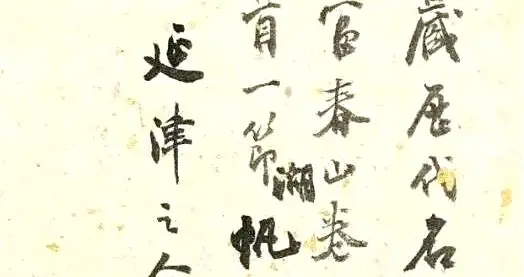 藏历代名
富春山卷
首一節湖帆
延津之